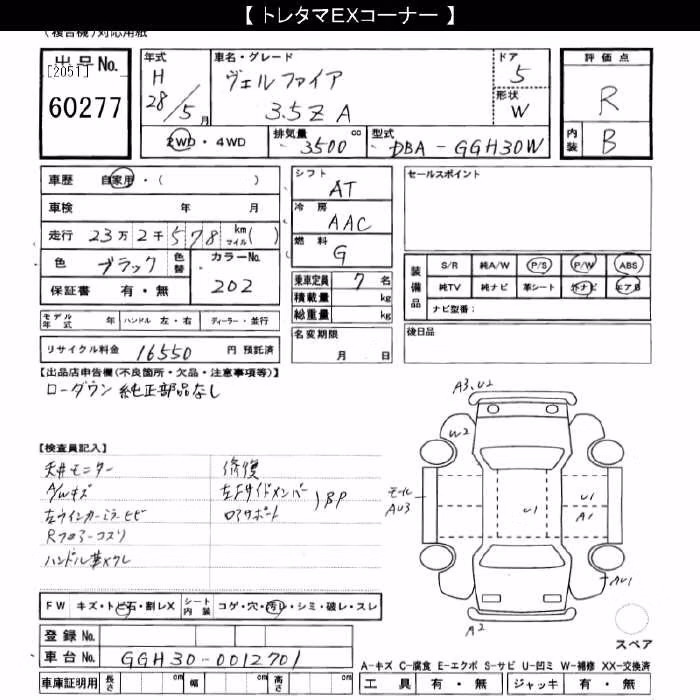 【 トレタマEXコーナー 】
(複合機)対応用紙
出品No.
[2051]
60277
年式
H
28/5月
車名・グレード
ヴェルファイア
3.5Z A
ドア
5
形状
W
評価点
R
内装
B
2WD・4WD
排気量
3500 cc
型式
DBA-GGH30W
車歴 自家用・( )
車検 年 月
走行 23万2千578 km マイル( )
色 ブラック 色替 カラーNo. 202
保証書 有・無
シフト
AT
冷房
AAC
燃料
G
乗車定員 7 名
積載量 kg
総重量 kg
セールスポイント
装備品
S/R 純A/W P/S P/W ABS
純TV 純ナビ 革シート 外ナビ エアB
ナビ型番:
モデル年式 年 ハンドル 左・右 ディーラー・並行
リサイクル料金 16550 円 預託済
名変期限
月 日
後日品
【出品店申告欄(不良箇所・欠品・注意事項等)】
ローダウン 純正部品なし
【検査員記入】
天井モニター 修復
A/Wキズ 左Fサイドメンバー )BP
左ウインカーミラーヒビ ロアサポート
Rフロアーコスリ
ハンドル革スレ
A3,U2
W2
モール
AU3
U1
U1
A1
AU1
A2
スペア
FW キズ・トビ石・割レX シート内装 コゲ・穴・汚レ・シミ・破レ・スレ
登録No.
車台No. GGH30-0012701
A-キズ C-腐食 E-エクボ S-サビ U-凹ミ W-補修 XX-交換済
車庫証明用 長さ cm 幅 cm 高さ cm 工具 有・無 ジャッキ 有・無